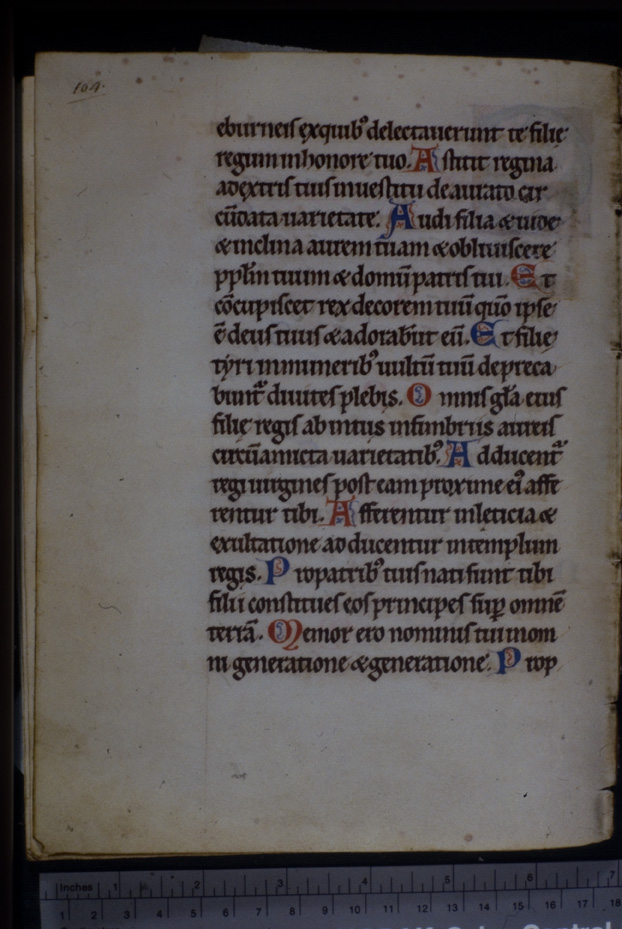 104.
eburneis exquib᾽ delectauerunt te filie
regum inhonore tuo. Astitit regina
adextris tuis inuestitu deaurato cir
cūdata uarietate. Audi filia & uide
& inclina aurem tuam & obliuiscere
pplm̄ tuum & domū patris tui. Et
cōcupiscet rex decorem tuū quō ipse
ē deus tuus & adorabt̄ eū. Et filie
tyri inmunerib᾽ uultū tuū depreca
bunt᾽ diuites plebis. Omnis gl̄a eius
filie regis ab intus infimbriis aureis
circūamicta uarietatib᾽. Adducent᾽
regi uirgines post eam proxime ei᾽ affe
rentur tibi. Afferentur inleticia &
exultatione adducentur intemplum
regis. Propatrib᾽ tuis nati sunt tibi
filii constitues eos principes sup̄ omnē
terrā. Memor ero nominis tui inom
ni generatione & generatione. Prop
Inches 1 2 3 4 5 6 7
1 2 3 4 5 6 7 8 9 10 11 12 13 14 15 16 17 18